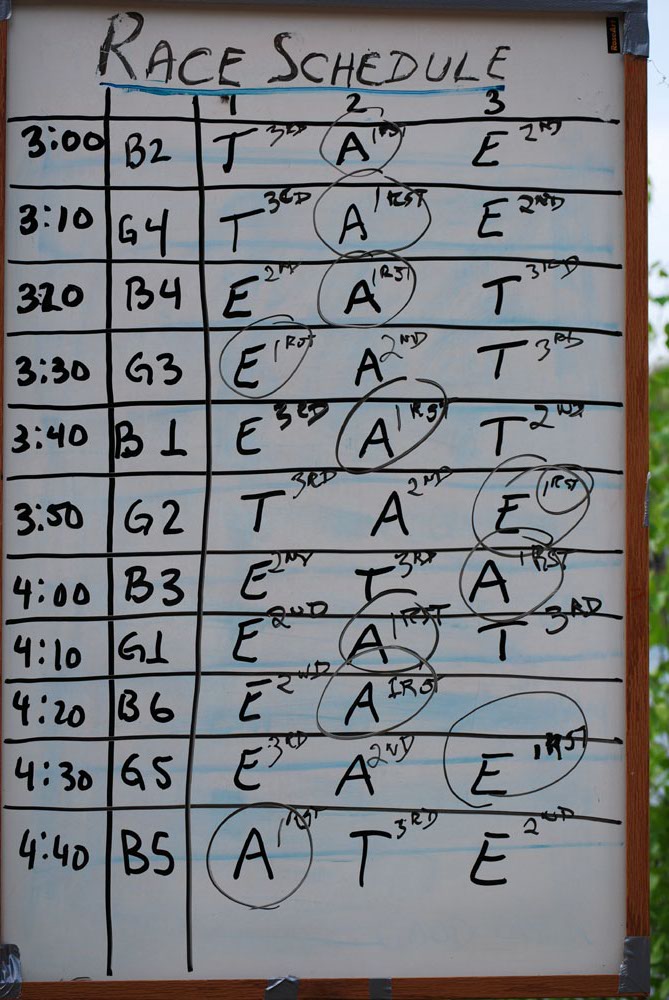 RACE SCHEDULE
1 2 3
3:00 B2 T 3RD A 1RST E 2ND
3:10 G4 T 3RD A 1RST E 2ND
3:20 B4 E 2ND A 1RST T 3RD
3:30 G3 E 1RST A 2ND T 3RD
3:40 B1 E 3RD A 1RST T 2ND
3:50 G2 T 3RD A 2ND E 1RST
4:00 B3 E 2ND T 3RD A 1RST
4:10 G1 E 2ND A 1RST T 3RD
4:20 B6 E 2ND A 1RST
4:30 G5 E 3RD A 2ND E 1RST
4:40 B5 A 1RST T 3RD E 2ND